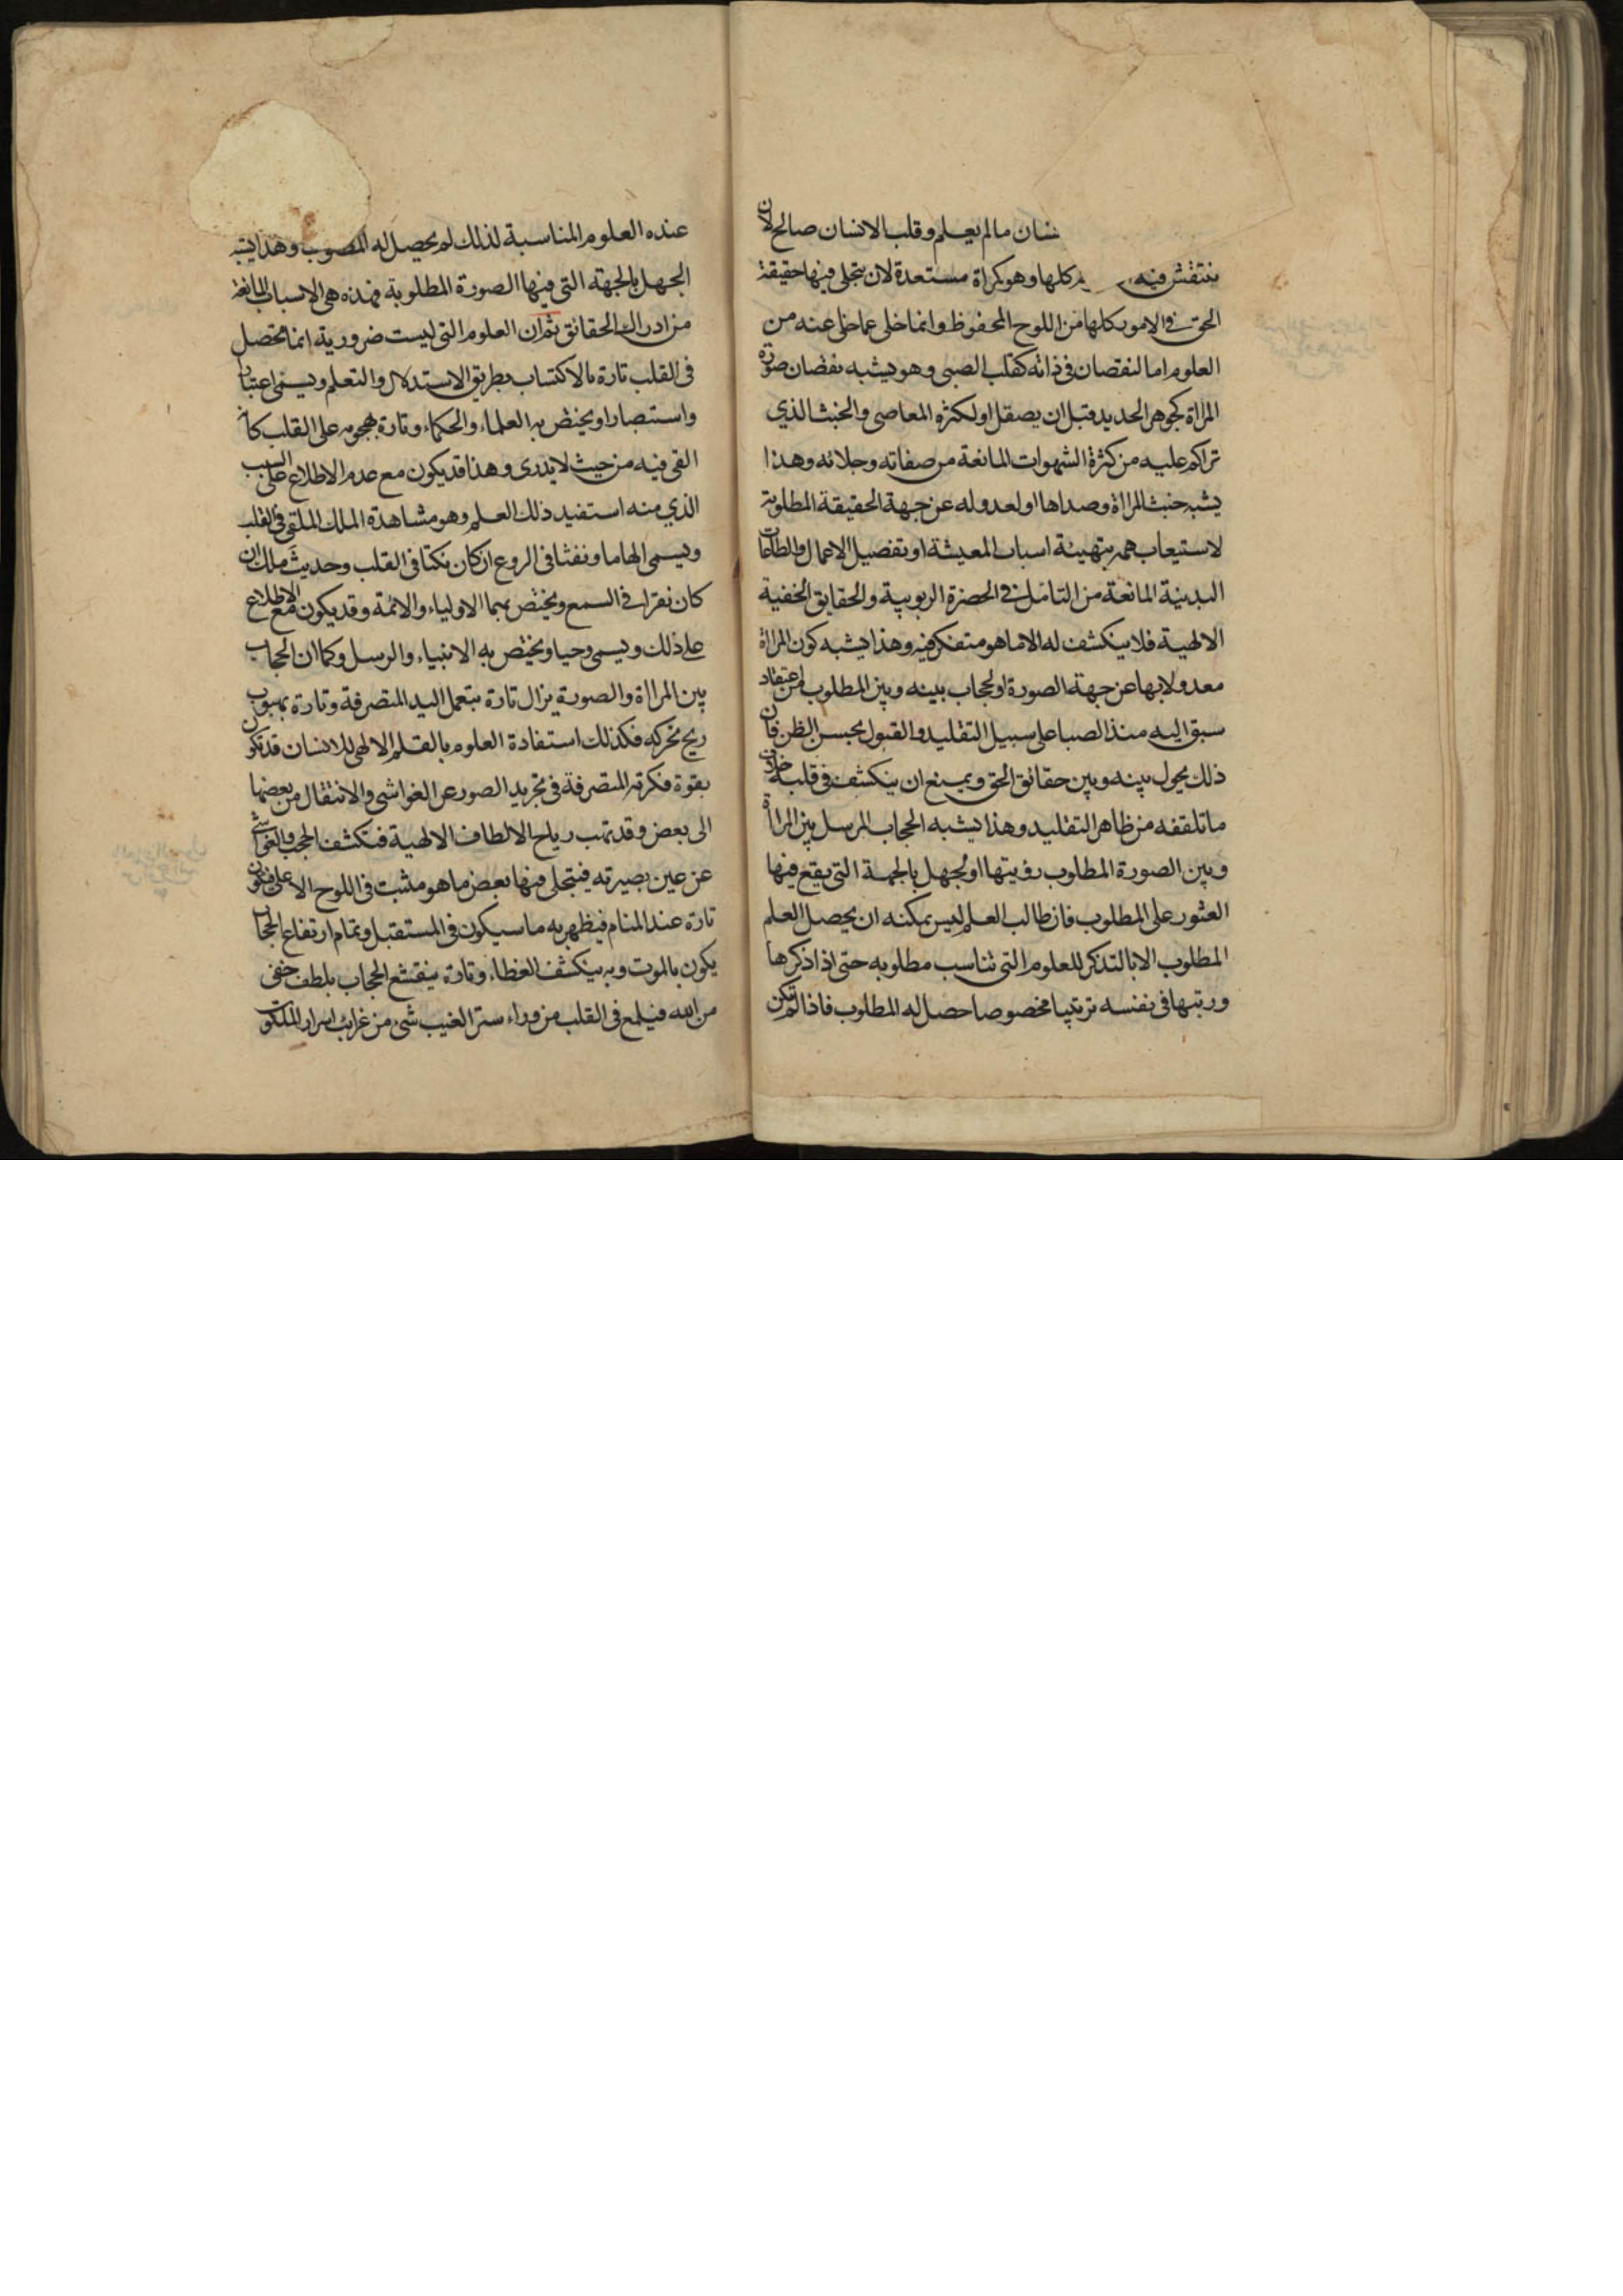 نسان مالم يعلم وقلب الانسان صالح لان
ينتقش فيه كلها وهو كمراة مستعدة لان يتجلى فيها حقيقة
الحق في الامور كلها من اللوح المحفوظ وانما خلى عما خلى عنه من
العلوم اما لنقصان في ذاته كقلب الصبى وهو يشبه نقصان صورة
المراة كجوهر الحديد قبل ان يصقل او لكثرة المعاصى والخبث الذي
تراكم عليه من كثرة الشهوات المانعة من صفائه وجلائه وهذا
يشبه خبث المراة وصداها او لعدوله عن جهة الحقيقة المطلوبة
لاستيعاب همه بتهيئة اسباب المعيشة او تفصيل الاعمال والطاعات
البدنية المانعة من التامل في الحضرة الربوبية والحقايق الخفية
الالهية فلا ينكشف له الا ما هو متفكر فيه وهذا يشبه كون المراة
معدولا بها عن جهة الصورة او لحجاب بينه وبين المطلوب من اعتقاد
سبق اليه منذ الصبا على سبيل التقليد والقبول بحسن الظن فان
ذلك يحول بينه وبين حقائق الحق ويمنع ان ينكشف في قلبه خلاف
ما تلقفه من ظاهر التقليد وهذا يشبه الحجاب المرسل بين المراة
وبين الصورة المطلوب رؤيتها او لجهل بالجهة التى يقع فيها
العثور على المطلوب فان طالب العلم ليس يمكنه ان يحصل العلم
المطلوب الا بالتذكر للعلوم التى تناسب مطلوبه حتى اذا ذكرها
ورتبها في نفسه ترتيبا مخصوصا حصل له المطلوب فاذا لم تكن
عنده العلوم المناسبة لذلك لم يحصل له المصوب وهذا يشبه
الجهل بالجهة التى فيها الصورة المطلوبة فهذه هي الاسباب المانعة
من ادراك الحقائق ثم ان العلوم التى ليست ضرورية انما تحصل
في القلب تارة بالاكتساب بطريق الاستدلال والتعلم ويسمى اعتبارا
واستبصارا ويختص به العلماء والحكماء وتارة بهجومه على القلب كانه
القى فيه من حيث لا يدرى وهذا قد يكون مع عدم الاطلاع على السبب
الذي منه استفيد ذلك العلم وهو مشاهدة الملك الملقى في القلب
ويسمى الهاما ونفثا في الروع ان كان نكتا في القلب وحديث ملك ان
كان نقرا في السمع ويختص بهما الاولياء والائمة وقد يكون مع الاطلاع
على ذلك ويسمى وحيا ويختص به الانبياء والرسل وكما ان الحجاب
بين المراة والصورة يزال تارة بتعمل اليد المتصرفة وتارة بهبوب
ريح تحركه فكذلك استفادة العلوم بالقلم الالهى للانسان قد تكون
بقوة فكرته المتصرفة في تجريد الصور عن الغواشى والانتقال من بعضها
الى بعض وقد تهب رياح الالطاف الالهية فتكشف الحجب والغواشى
عن عين بصيرته فيتجلى فيها بعض ما هو مثبت في اللوح الاعلى فيكون
تارة عند المنام فيظهر به ما سيكون في المستقبل وتمام ارتفاع الحجاب
يكون بالموت وبه ينكشف الغطاء وتارة ينقشع الحجاب بلطف خفى
من الله فيلمع في القلب من وراء ستر الغيب شئ من غرائب اسرار الملكوت